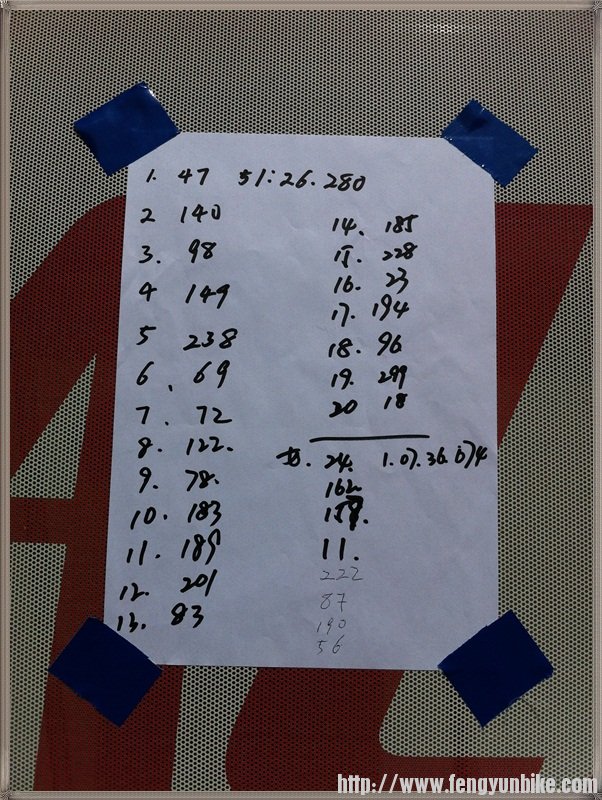 1. 47 51:26.280
2 140
3. 98
4 149
5 238
6. 69
7. 72
8. 122.
9. 78.
10. 183
11. 189
12. 201
13. 83
14. 185
15. 228
16. 23
17. 194
18. 96
19. 299
20 18
女. 24. 1.07.36.074
162
11.
222
87
190
56
http://www.fengyunbike.com